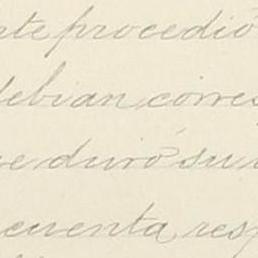 te procedió
debian corres
e duró su
cuenta resp